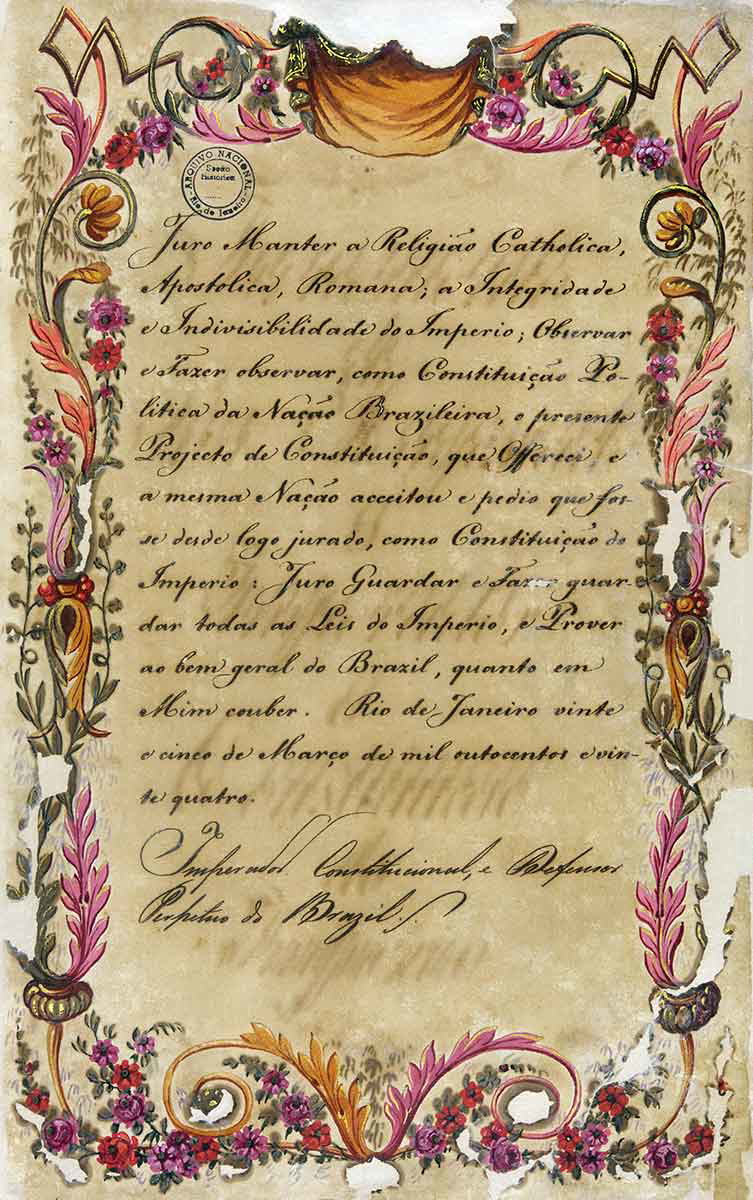 ARQUIVO NACIONAL
Secão
historica
Rio de Janeiro
Juro Manter a Religião Catholica,
Apostolica, Romana; a Integridade
e Indivisibilidade do Imperio; Observar
e Fazer observar, como Constituição Po-
litica da Nação Brazileira, o presente
Projecto de Constituição, que Offereci, e
a mesma Nação acceitou e pedio que fos-
se desde logo jurado, como Constituição do
Imperio: Juro Guardar e Fazer guar-
dar todas as Leis do Imperio, e Prover
ao bem geral do Brazil, quanto em
Mim couber. Rio de Janeiro vinte
e cinco de Março de mil outocentos e vin-
te quatro.
Imperador Constitucional, e Defensor
Perpetuo do Brazil.